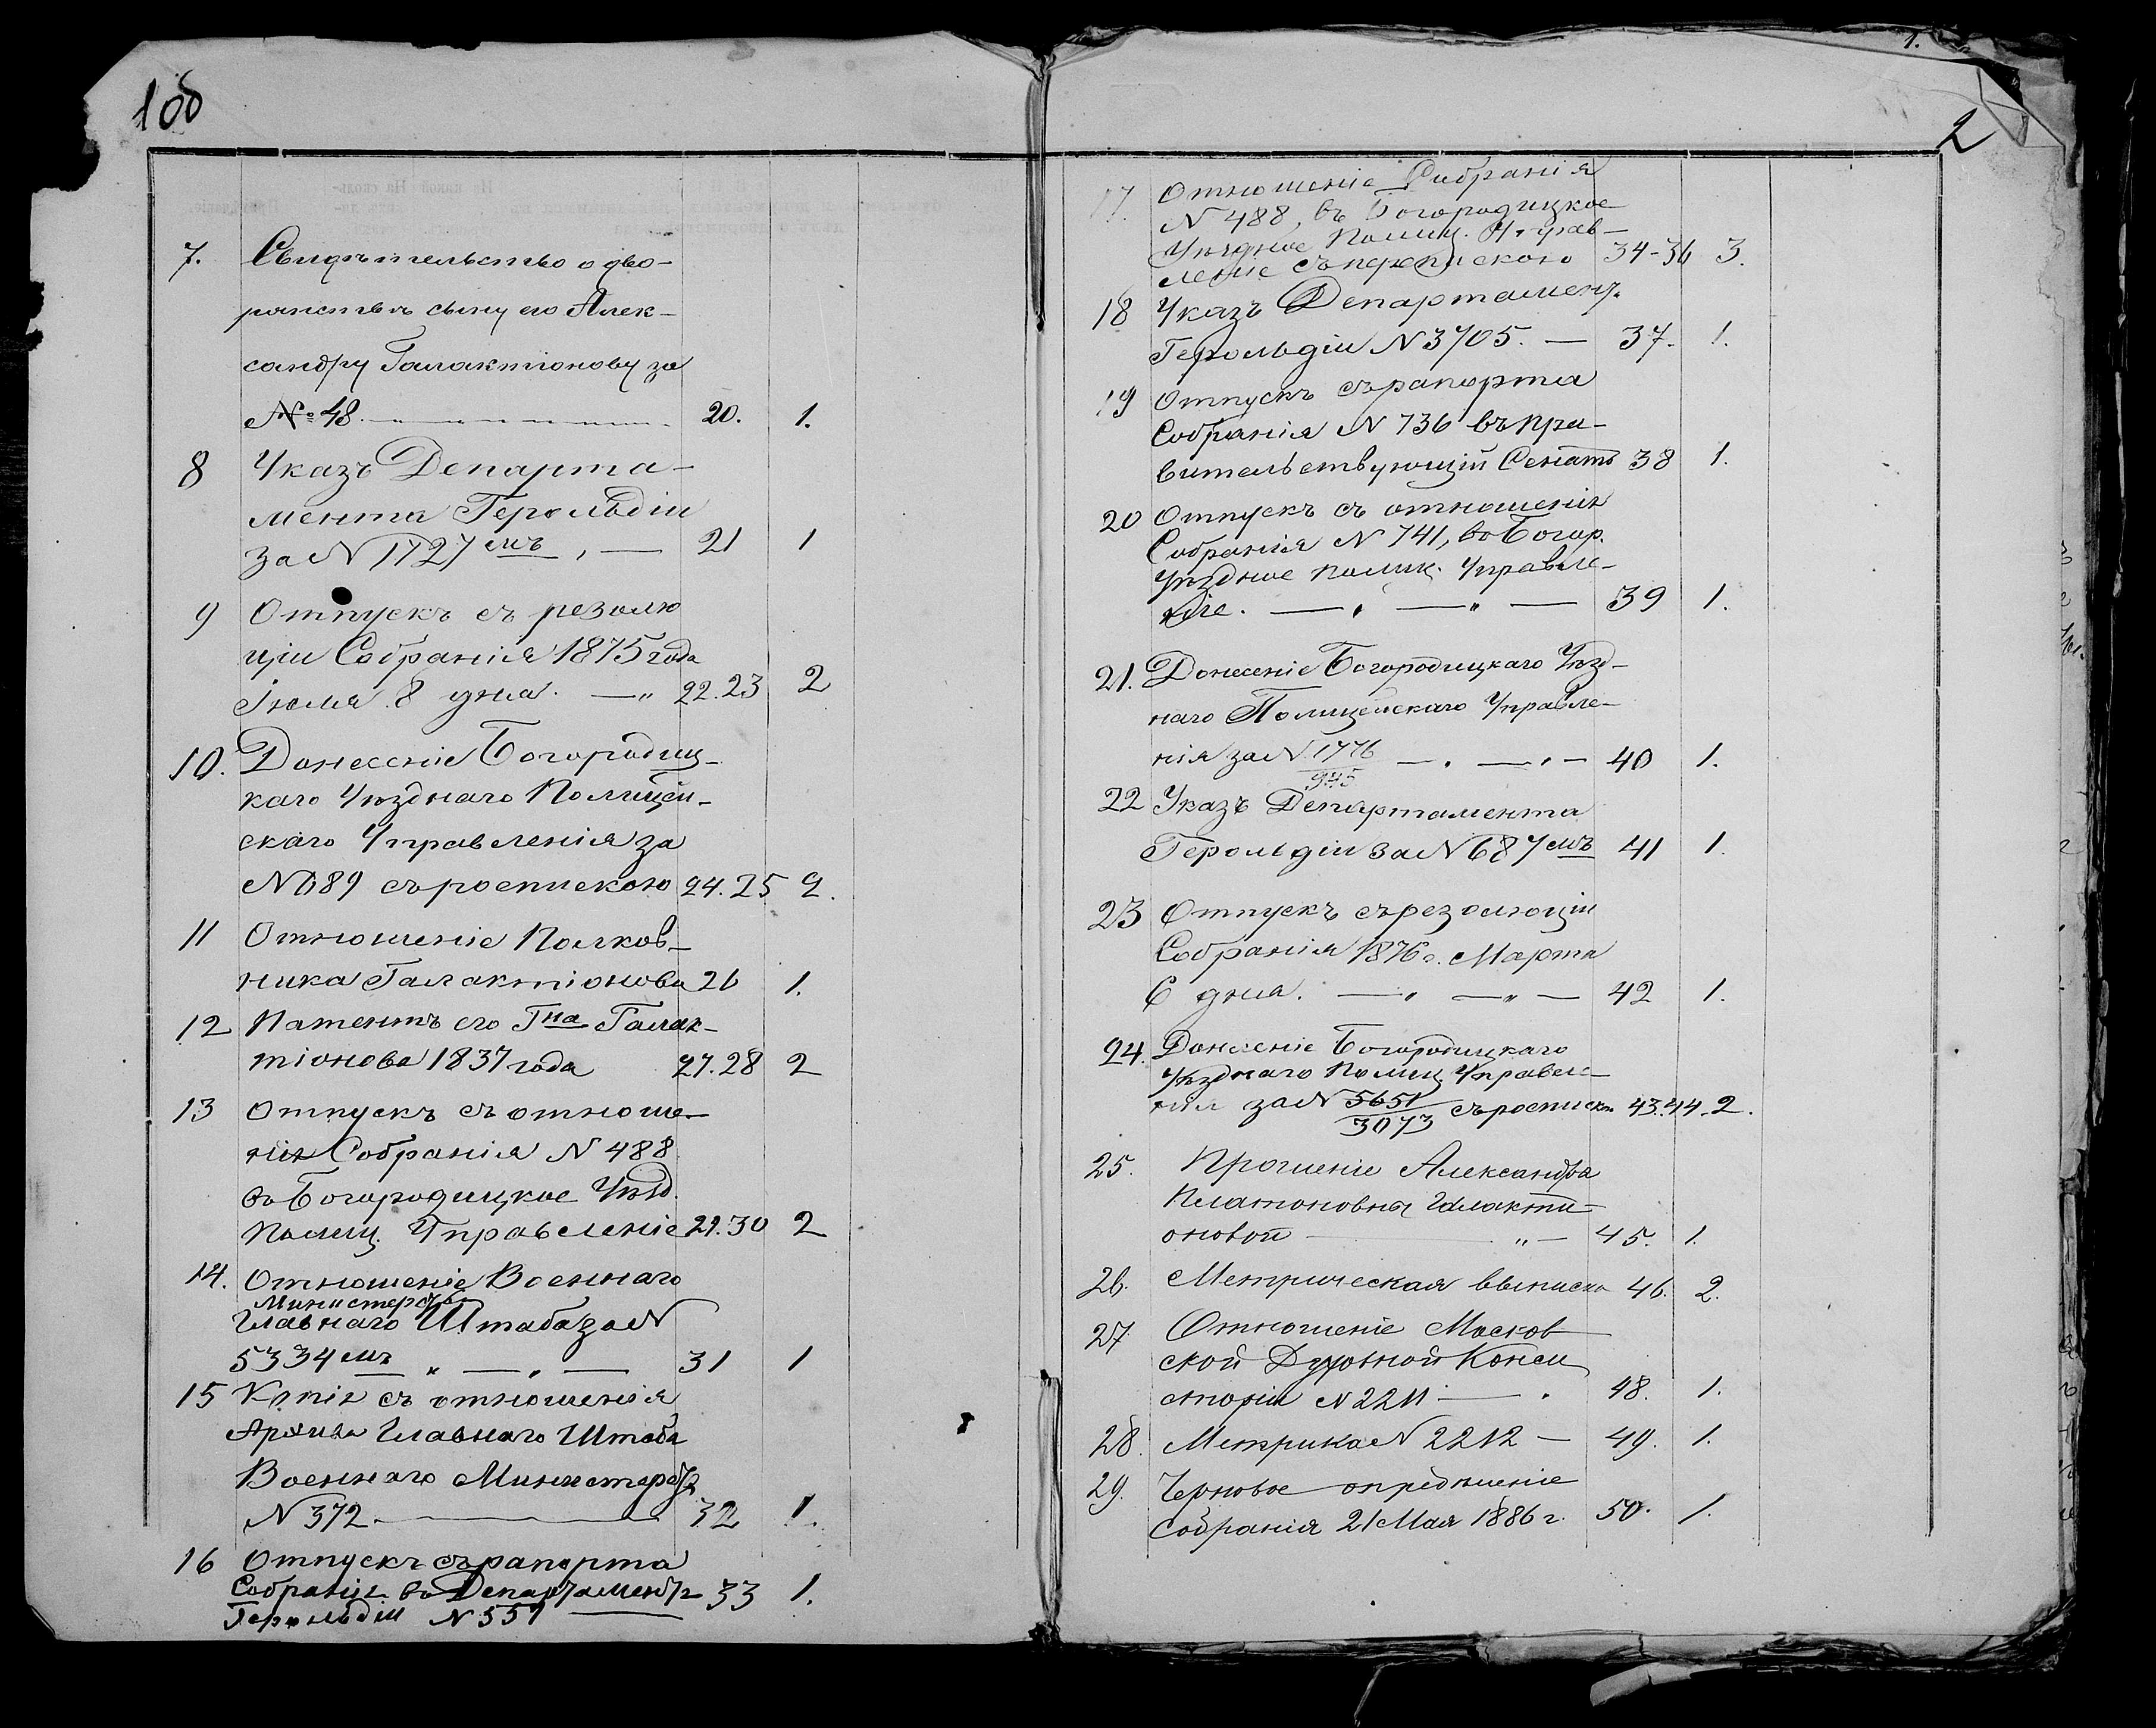 1об
7. Свидѣтельство о дво-
рянствѣ сыну его Алек-
сандру Галактіонову за
№ 48. 20. 1.
8 Указъ Департа-
мента Герольдіи
за N 1727мъ, — 21 1
9 Отпускъ съ резолю
ціи Собранія 1875 года
Іюля 8 дня. — 22.23 2
10. Донесеніе Богородиц-
каго Уѣзднаго Полицей-
скаго Управленія за
N 689 съ роспискою 24.25 2.
11 Отношеніе Полков-
ника Галактіонова 26 1.
12 Патентъ его Гна Галак-
тіонова 1837 года 27.28 2
13 Отпускъ съ отноше-
нія Собранія N 488
въ Богородицкое Уѣзд.
Полиц. Управленіе 29.30 2
14. Отношеніе Военнаго
Министерства
Главнаго Штаба за N
5334мъ „ — „ — 31 1
15 Копія съ отношенія
Архива Главнаго Штаба
Военнаго Министерства
N 372. — 32 1.
16 Отпускъ съ рапорта
Собранія въ Департаментъ 33 1.
Герольдіи N 551 —
1.
2
17. Отношеніе Собранія
N 488, въ Богородицкое
Уѣздное Полиц. Управ-
леніе съ перепискою 34-36 3.
18 Указъ Департамен.
Герольдіи N 3705. — 37. 1.
19 Отпускъ съ рапорта
Собранія N 736 въ Пра-
вительствующій Сенатъ 38 1.
20 Отпускъ съ отношенія
Собранія N 741, въ Богор.
Уѣздное Полиц. Управле-
ніе. — „ — „ — 39 1.
21. Донесеніе Богородицкаго Уѣзд-
наго Полицейскаго Управле-
нія за N 1776/945 — „ — „ — 40 1.
22 Указъ Департамента
Герольдіи за N 687мъ 41 1.
23 Отпускъ съ резолюціи
Собранія 1876 г. Марта
6 дня. — „ — „ — 42 1.
24. Донесеніе Богородицкаго
Уѣзднаго Полиц. Управле-
нія за N 5651/3073 съ росписк. 43.44. 2.
25. Прошеніе Александра
Платоновны Галакті-
оновой — „ — 45. 1.
26. Метрическая выписка 46. 2.
27. Отношеніе Москов
ской Духовной Конси
сторіи N 2211 — 48. 1.
28. Метрика N 2212 — 49. 1.
29. Черновое опредѣленіе
Собранія 21 Мая 1886 г. 50. 1.